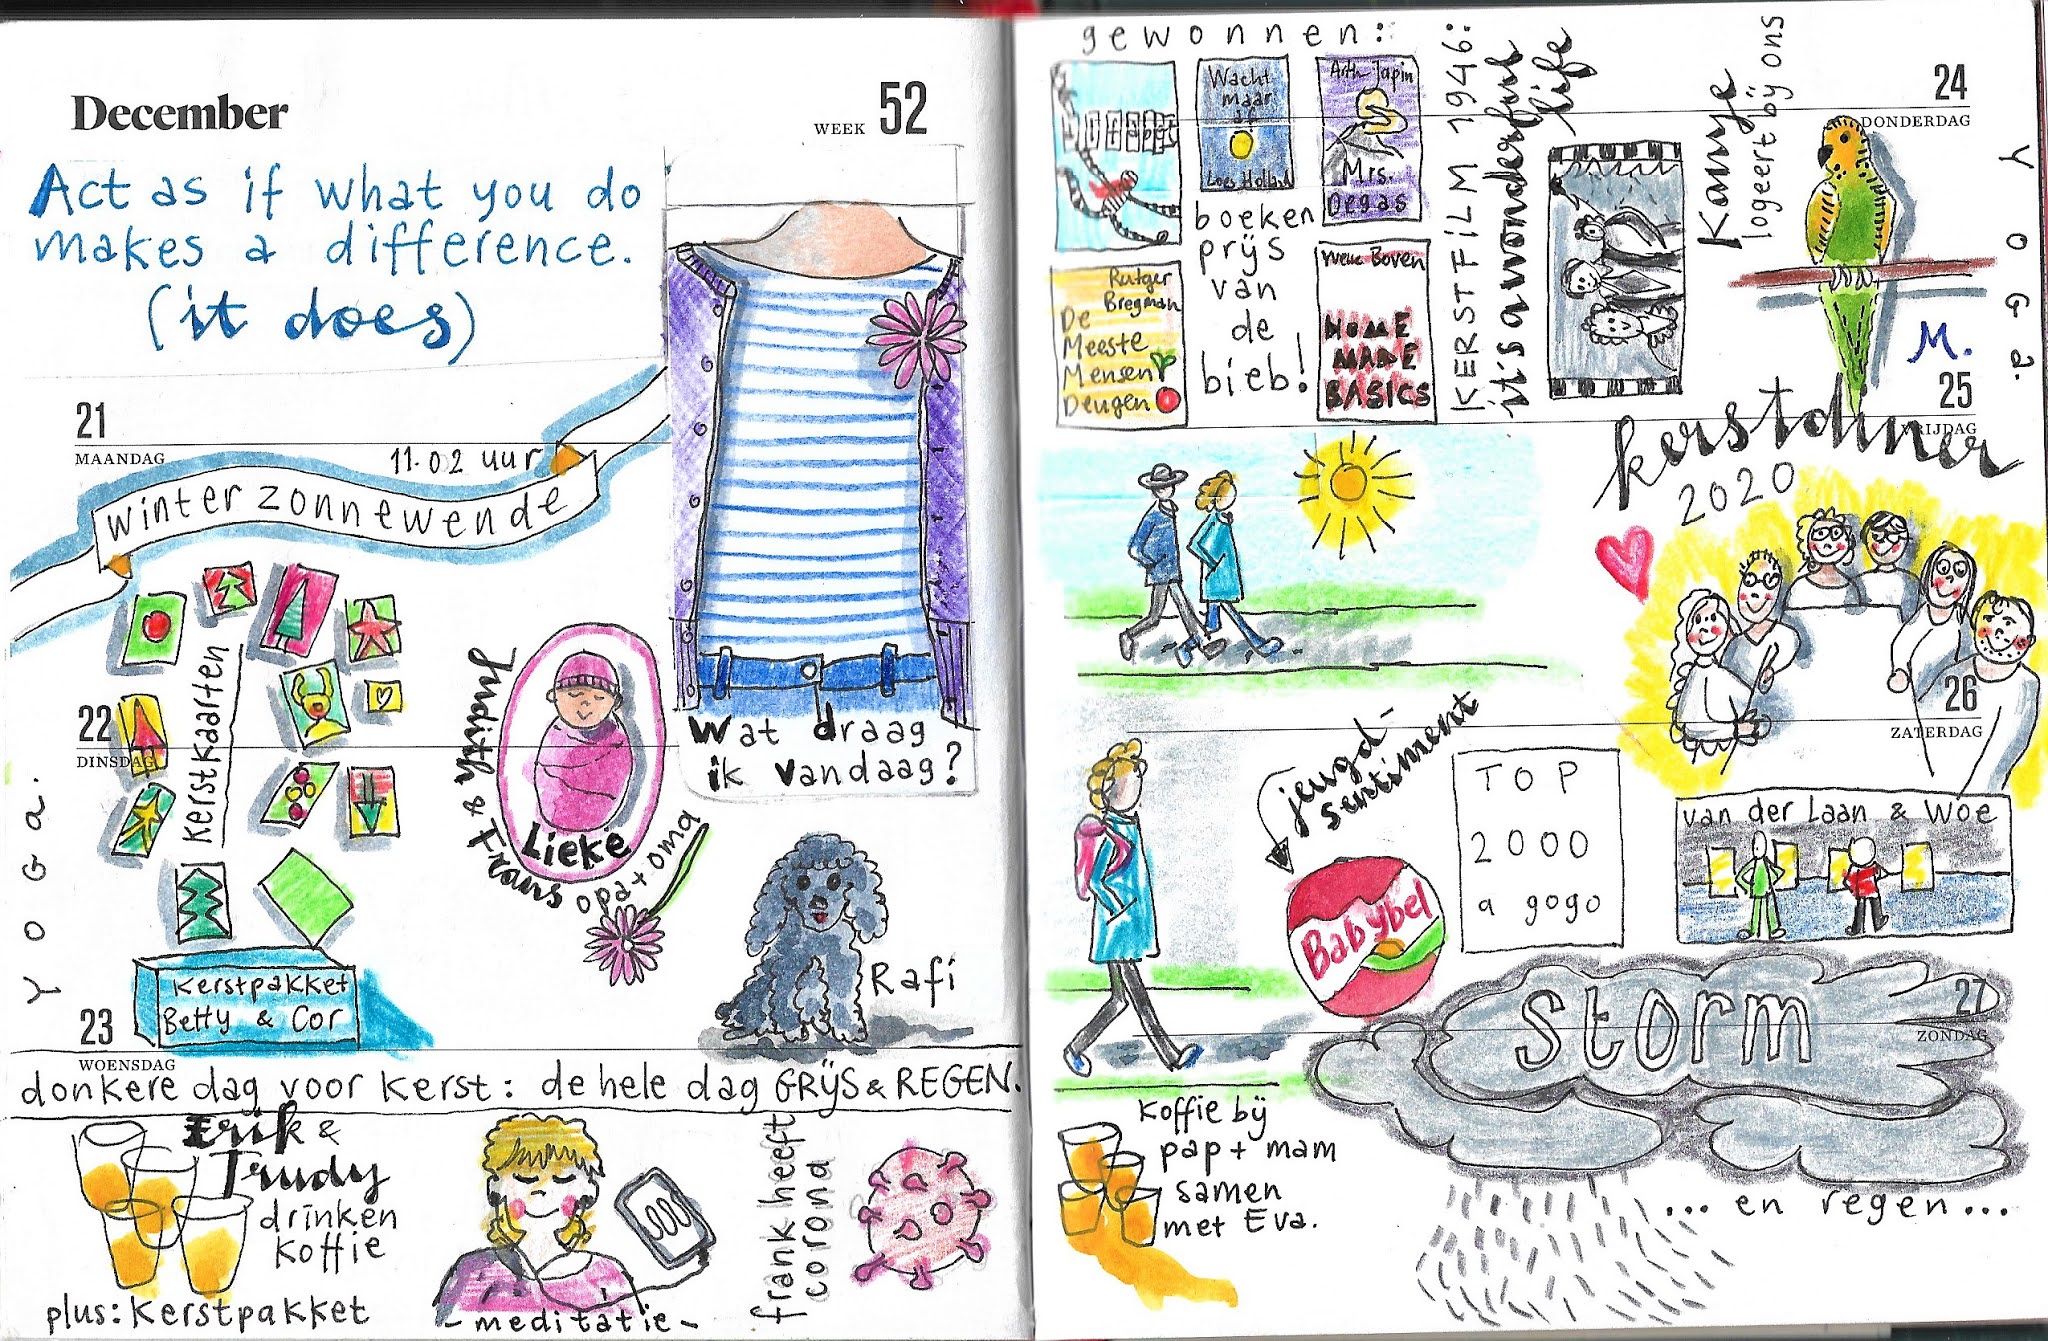 December
WEEK 52
Act as if what you do
makes a difference.
(it does)
21
MAANDAG
11.02 uur
winterzonnewende
Wat draag
ik vandaag?
Kerstkaarten
22
DINSDAG
YOGA.
Judith &
Frans
Lieke
opa + oma
Rafi
Kerstpakket
Betty & Cor
23
WOENSDAG
donkere dag voor Kerst: de hele dag GRIJS & REGEN.
Erik &
Trudy
drinken
Koffie
plus: Kerstpakket
- meditatie -
frank heeft
corona
gewonnen:
Alfabet
Wacht
maar
af
Loes Holland
Mrs.
Degas
Rutger
Bregman
De
Meeste
Mensen
Deugen
boeken
prijs
van
de
bieb!
Yvette Boven
HOME
MADE
BASICS
KERSTFILM 1946:
it's a wonderful
life
logeert bij ons
24
DONDERDAG
YOGA.
M.
25
VRIJDAG
kerstdiner
2020
26
ZATERDAG
jeugd-
sentiment
Babybel
TOP
2000
a gogo
van der Laan & Woe
27
ZONDAG
storm
... en regen...
Koffie bij
pap + mam
samen
met Eva.